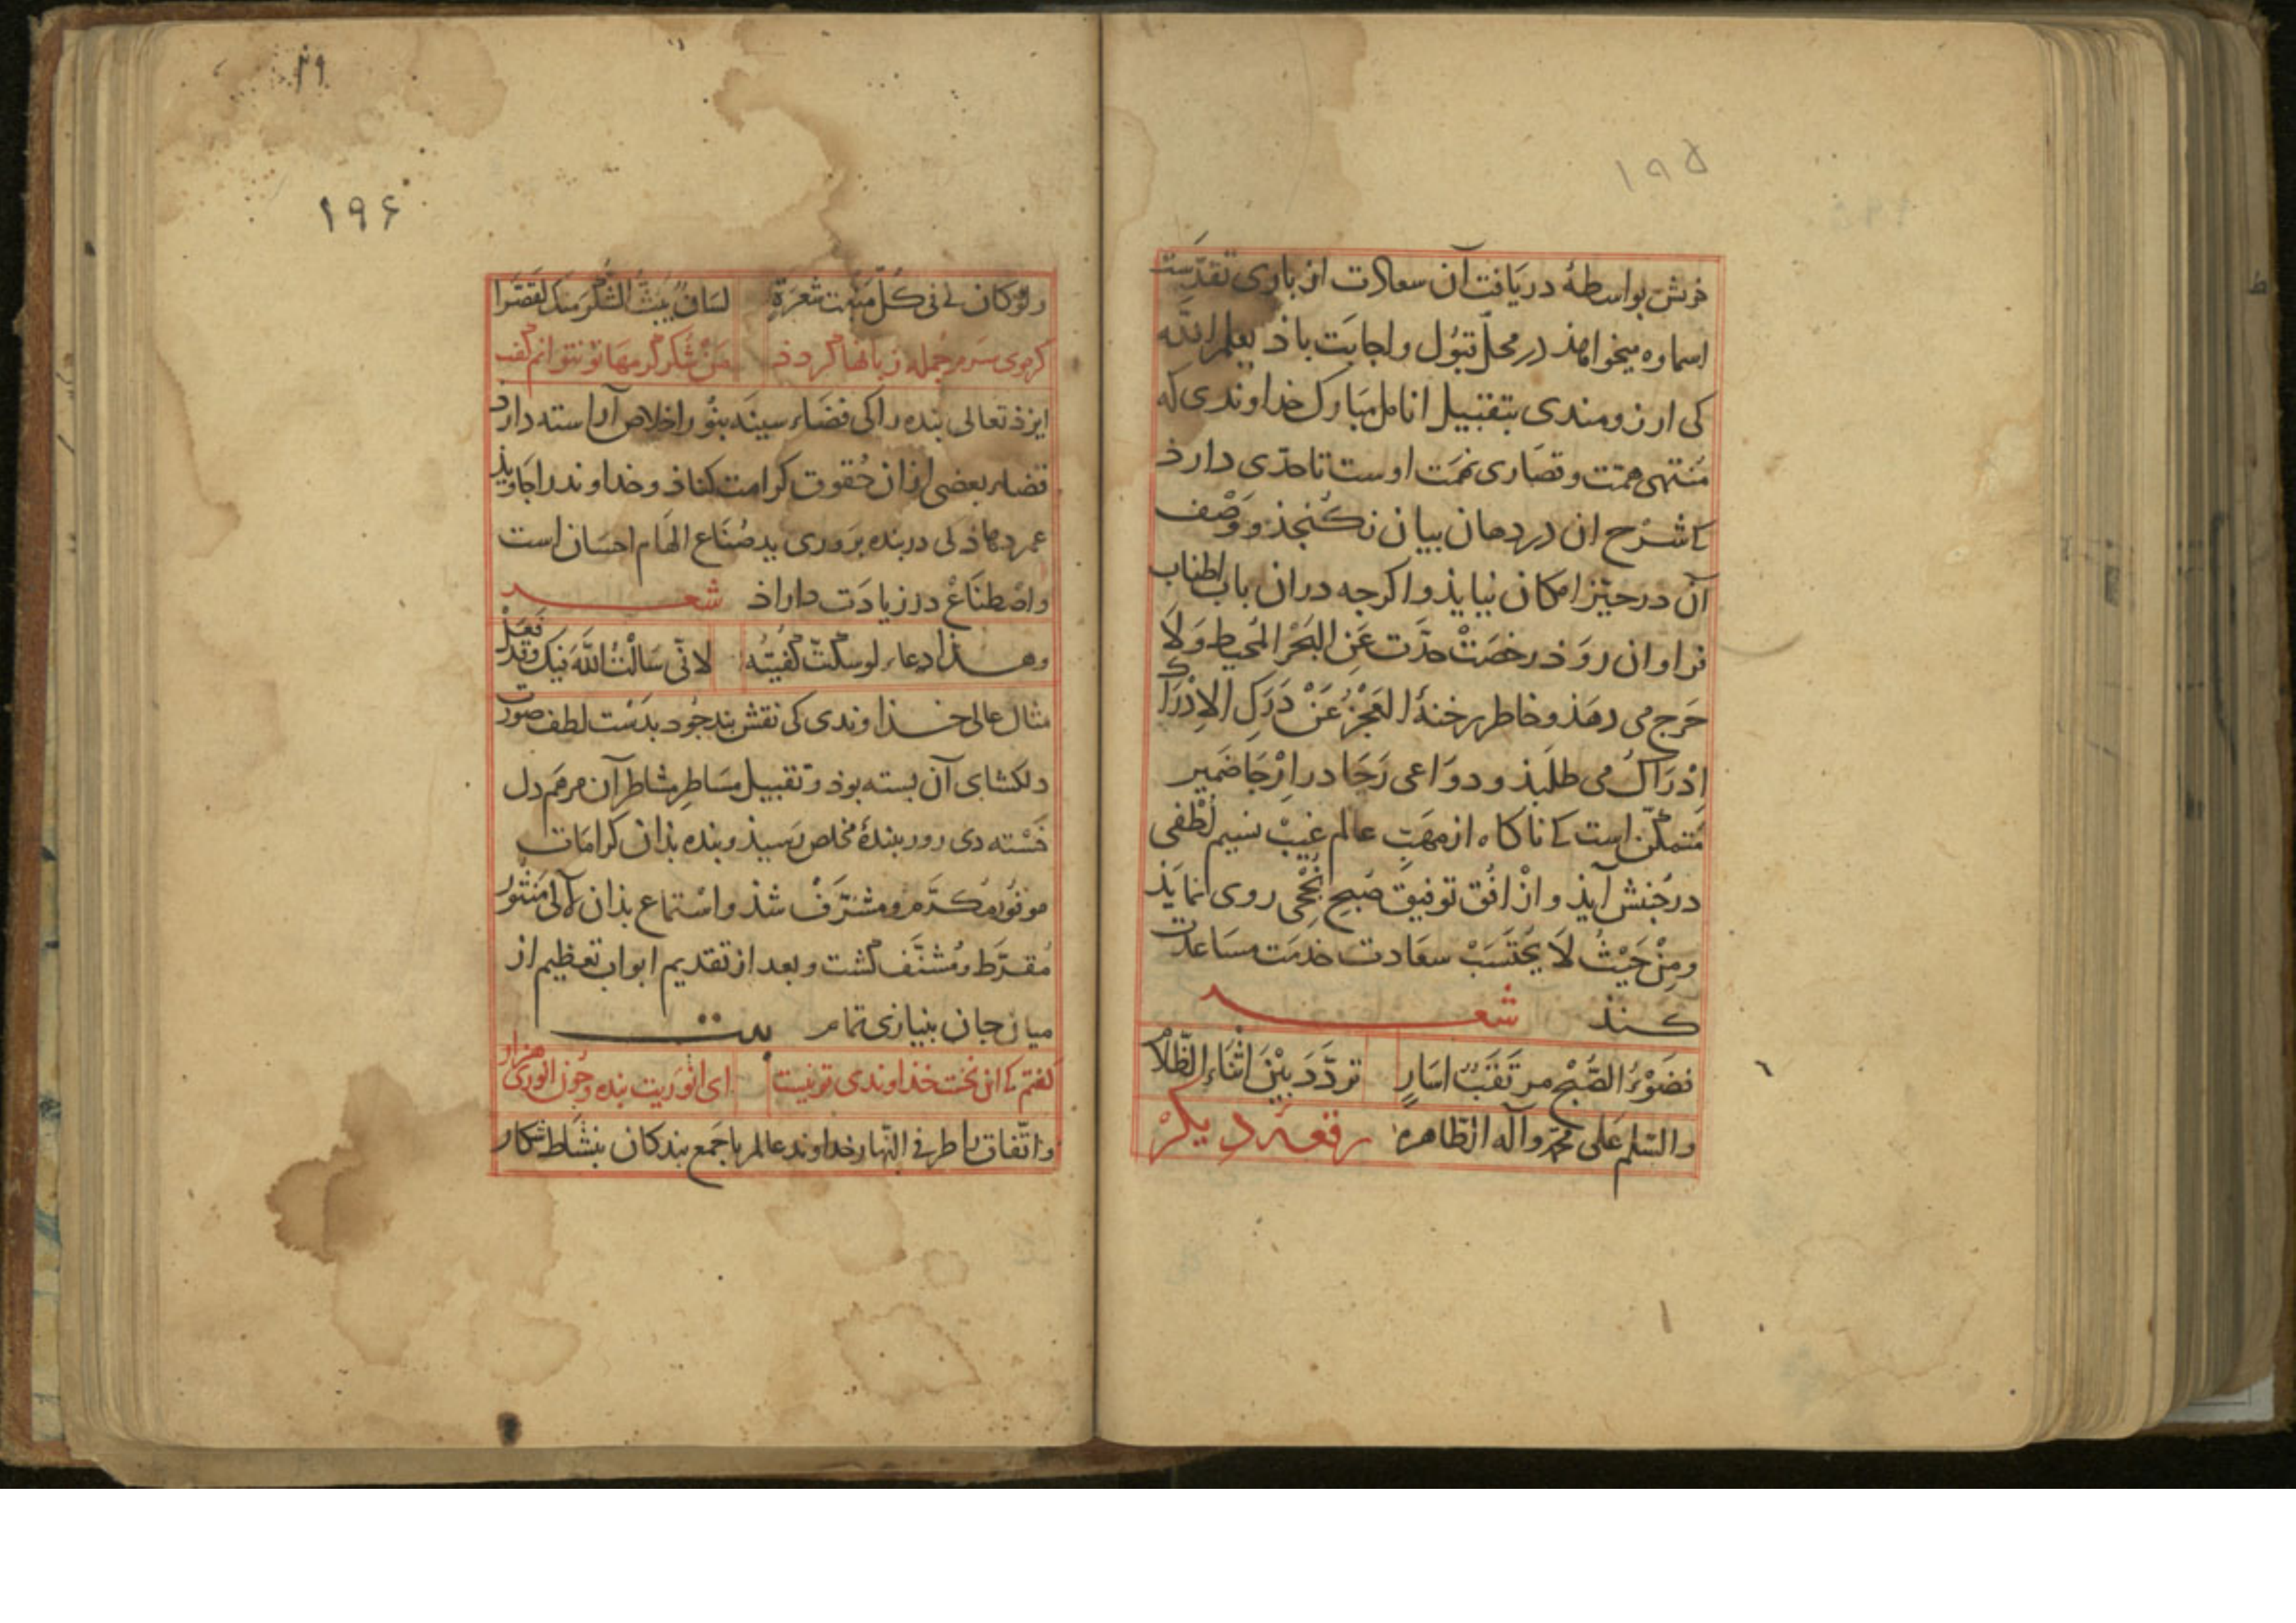 ۱۹۵
خویش بواسطهٔ دریافت آن سعادت از باری تقدّست
اسماوه میخواهذ در محلّ قبول و اجابت باذ یعلم الله
کی ارزومندی بتقبیل انامل مبارک خداوندی که
مُنتهی همّت و قصاری نهمَت اوست تا حدّی دارذ
کی شرح ان در دهان بیان نکنجذ و وَصْف
آن در حیّز امکان نیایذ و اکرجه دران باب اطناب
فراوان روَذ رخصَتْ حدِّث عَنِ البَحْرِ المُحیط وَلَا
حَرَج می دهذ و خاطر بر خنهٔ العَجْزُ عَنْ دَرَکِ الاِدْرَاک
اِدْرَاکٌ می طلَبذ و دوَاعی رَجَا در اَرْجَا ضَمیر
مُتمکّن است کی ناکاه از مهَبّ عالم غیبْ نسیم لُطْفی
در جُنبش آیذ و از افُق توفیق صُبحِ نُجْحی روی نمایَذ
و مِنْ حَیْثُ لَا یُحْتَسَبْ سعَادت خدمَت مسَاعدَت
کنذ شعر
فضَوْءُ الصُّبْحِ مرتَقَبٌ اسَارٍ تردَّدَ بَیْنَ اثْنَاءِ الظَّلَام
والسّلم عَلی محمّد وآله الطّاهره رقعهٔ دیکر
۱۹۶
ولوْ کان لی فی کُلّ مَنْبِتِ شعرَةٍ لسَانٌ یَبُثُّ الشُّکْرَ مِنکَ لقَصَّرا
کر موی سَر مر جُمله زبانها کردذ مَنْ شُکر کرمهَا تو نتوانم کفت
ایزذ تعالی بنده را کی فضَاء سینَه بنُور اخلاص آراسته دارد
قضاء بعضی از ان حُقوق کرامت کناذ و خداوند را جاویذ
عمر دهاذ کی در بنده بَروری ید صُنّاع الهَام احسَان است
و اصْطنَاعْ در زیادَت داراذ شعر
وهـذا دعاء لو سکتُّ کُفیتُهُ لانّی سَالْتُ اللّهَ فیک وقد فعَل
مثال عالی خـذاوندی کی نقش بند جُود بدَسْت لطف صورت
دلکشای آن بسته بوذ و تقبیل مسَاطِر مشاطر آن مرهَم دل
خَسْته دی روز بندهٔ مخلص رَسیذ و بنده بذان کرامَات
موفُور مُکَرَّم و مشرَّفْ شذ و اسْتماع بذان لآلی مَنثُور
مُقَرَّط و مُشنَّف کشت و بعد از تقدیم ابواب تعظیم از
میان جان بنیازی تمام بیت
کفتم کی از بخت خذاوندی تو نیست ای انوَریت بنده و جُون انوری هزار
و اتّفاق را طرفی النّهار خداوند عالم با جَمع بندکان بنشَاط شکار